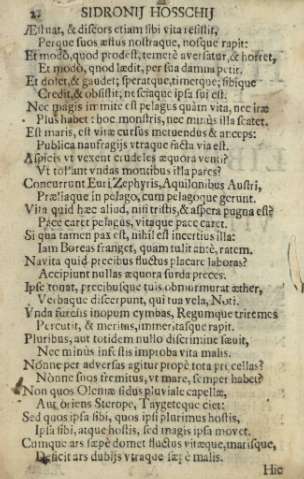 2 SIDRONII HOSSCHII
Æstuat, & discors etiam sibi vita resistit,
Perque suos æstus nostraque, nosque rapit:
Et modò, quod prodest, temerè aversatur, & horret,
Et modò, quod lædit, per sua damna petit.
Et dolet, & gaudet; speratque, timetque; sibique
Credit, & obsistit; nesciaque ipsa sui est.
Nec magis immite est pelagus quàm vita, nec iræ
Plus habet: hoc monstris, nec minùs illa scatet.
Est maris, est vitæ cursus metuendus & anceps:
Publica naufragijs vtraque facta via est.
Aspicis vt vexent crudeles æquora venti?
Vt tollant vndas montibus illa pares?
Concurrunt Euri Zephyris, Aquilonibus Austri,
Præliaque in pelago, cum pelagoque gerunt.
Vita quid hæc aliud, nisi tristis, & aspera pugna est?
Pace caret pelagus, vitaque pace caret.
Si qua tamen pax est, nihil est incertius illa:
Iam Boreas franget, quam tulit antè, ratem.
Navita quid precibus fluctus placare laboras?
Accipiunt nullas æquora surda preces.
Ipse tonat, precibusque tuis obmurmurat æther,
Verbaque discerpunt, qui tua vela, Noti.
Vnda furens inopum cymbas, Regumque triremes
Percutit, & meritas, immeritasque rapit.
Pluribus, aut totidem nullo discrimine sævit,
Nec minùs infestis improba vita malis.
Nónne per adversas agitur propè tota procellas?
Nónne suos fremitus, vt mare, semper habet?
Non quos Oleniæ sidus pluviale capellæ,
Aut oriens Sterope, Taygeteque ciet:
Sed quos ipsa sibi, quos ipsi plurimus hostis,
Ipsa sibi, atque hostis, sed magis ipsa movet.
Cumque ars sæpè domet fluctus vitæque, marisque,
Deficit ars dubijs vtraque sæpè malis.
Hic